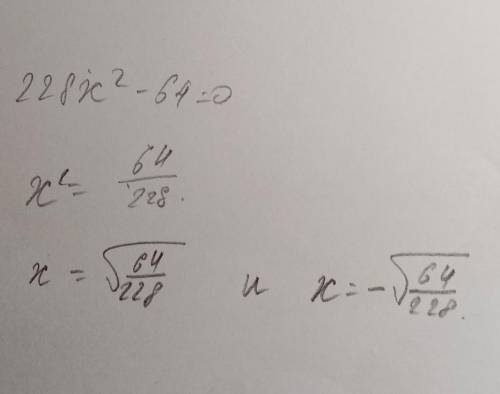 228x² - 64 = 0
x² = 64/228.
x = √(64/228) и x = -√(64/228).